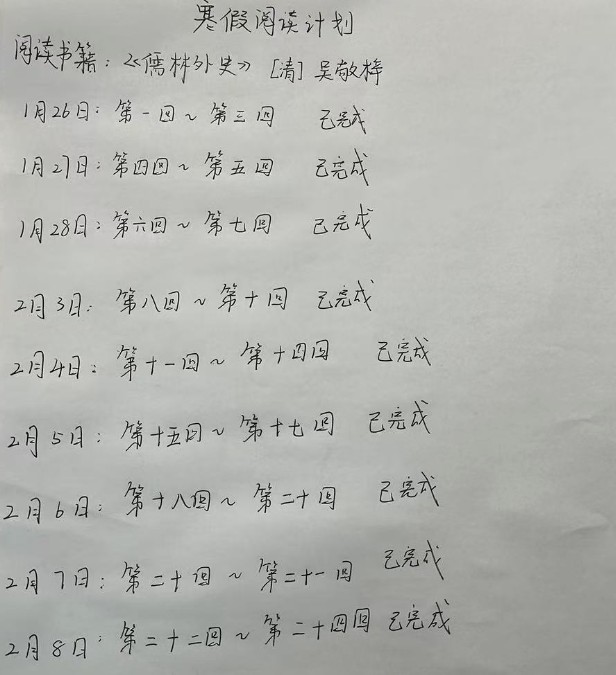 寒假阅读计划
阅读书籍：《儒林外史》[清] 吴敬梓
1月26日：第一回～第三回 已完成
1月27日：第四回～第五回 已完成
1月28日：第六回～第七回 已完成
2月3日：第八回～第十回 已完成
2月4日：第十一回～第十四回 已完成
2月5日：第十五回～第十七回 已完成
2月6日：第十八回～第二十回 已完成
2月7日：第二十回～第二十一回 已完成
2月8日：第二十二回～第二十四回 已完成